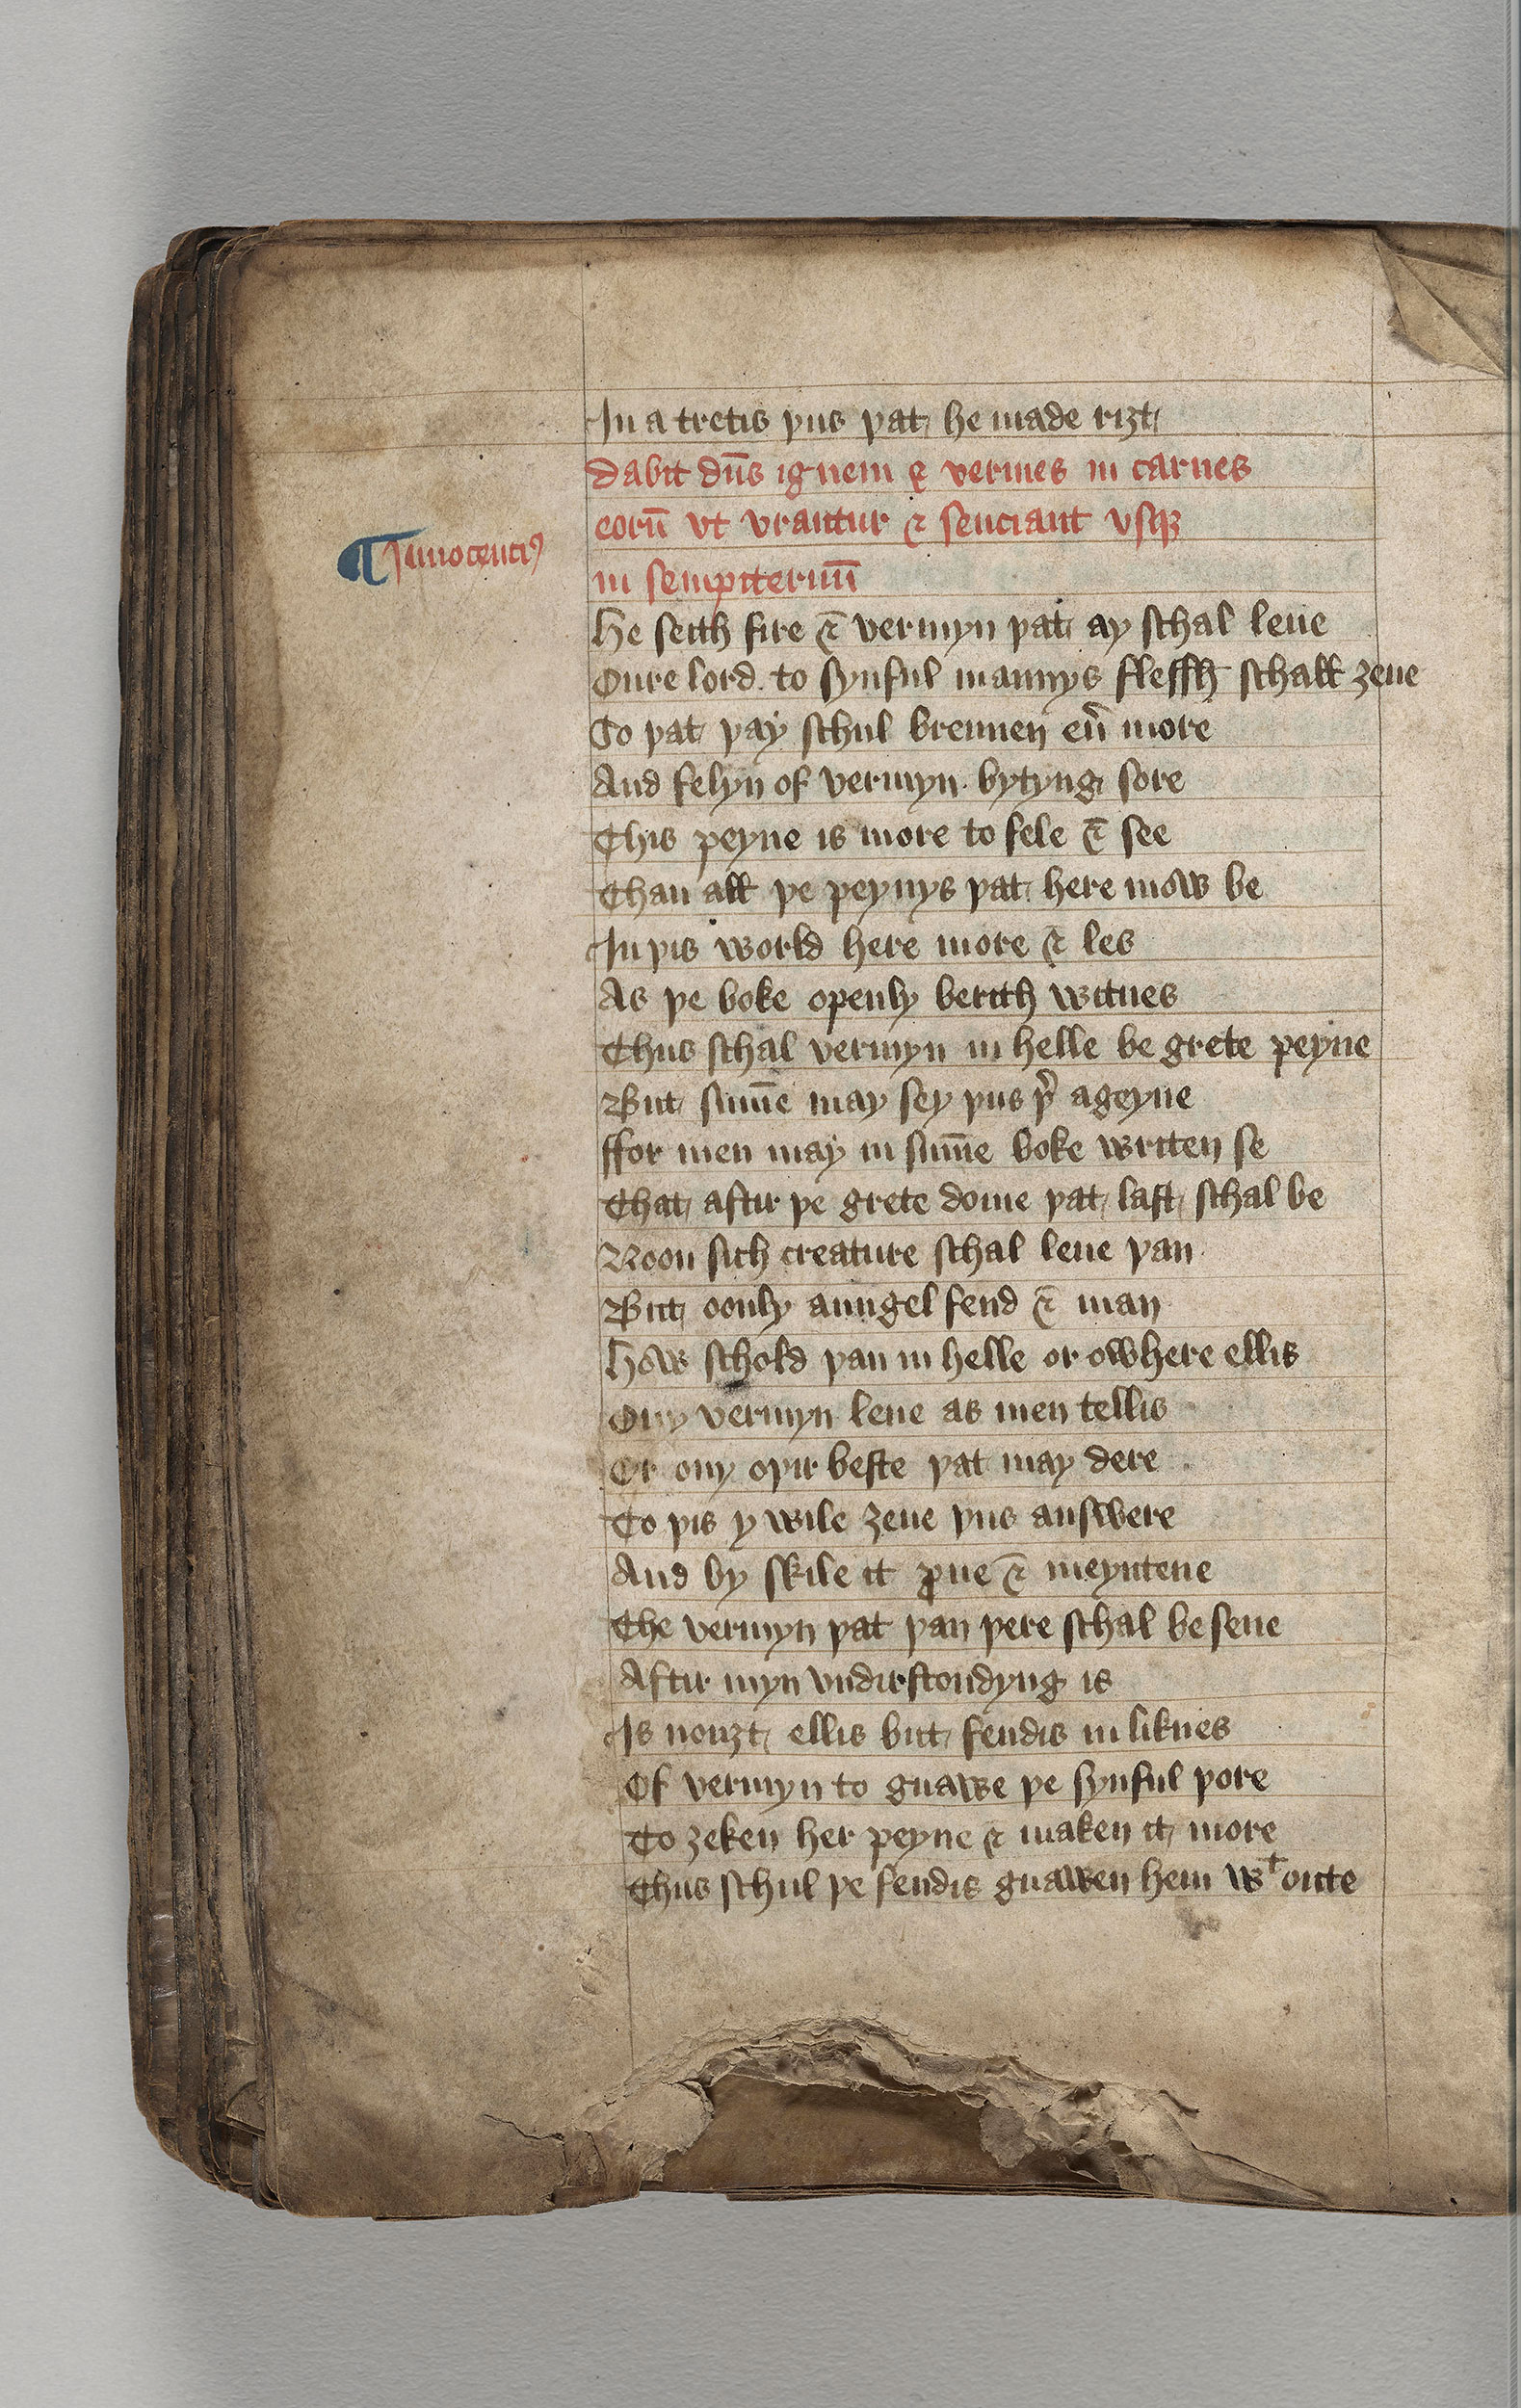 In a tretis þus þat he made riȝt
dabit dn̄s ignem ⁊ vermes in carnes
eorū vt vrantur ⁊ senciant vsqꝫ
¶ Innocenciꝰ
in sempiternū
He seith fire ⁊ vermyn þat ay schal leue
Oure lord to synful mannys flessh schall ȝeue
To þat þay schul brennen eu̾ more
And felyn of vermyn bytyng sore
This peyne is more to fele ⁊ see
Than all þe peynys þat here mow be
In þis world here more ⁊ les
As þe boke openly berith witnes
Thus schal vermyn in helle be grete peyne
But sum̄e may sey þus þ̾ ageyne
ffor men may in sum̄e boke writen se
That aftir þe grete dome þat last schal be
Noon sich creature schal leue þan
But oonly aungel fend ⁊ man
How schold þan in helle or owhere ellis
Ony vermyn leue as men tellis
Or ony oþir beste þat may dere
To þis y wile ȝeue þus answere
And by skile it ꝓue ⁊ meyntene
The vermyn þat þan þere schal be sene
Aftir myn vndirstondyng is
Is nouȝt ellis but fendis in liknes
Of vermyn to gnawe þe synful þore
To ȝeken her peyne ⁊ maken it more
Thus schul þe fendis gnawen hem wᵗ oute